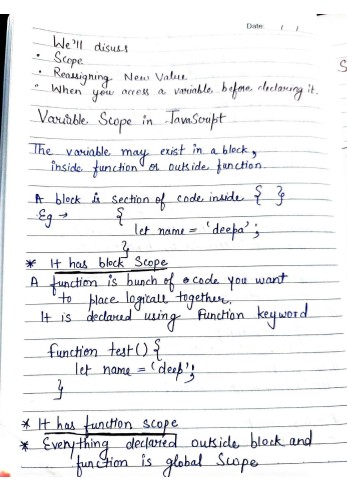 Date: / /
We'll disuss
• Scope
• Reassigning New Value
• When you access a variable before declaring it.
S
Variable Scope in JavaScript
The variable may exist in a block,
inside function or outside function.
A block is section of code inside { }
Eg → {
let name = 'deepa';
}
* It has block Scope
A function is bunch of code you want
to place logicall together.
It is declared using Function keyword
function test() {
let name = 'deep';
}
* It has function scope
* Everything declared outside block and
function is global Scope